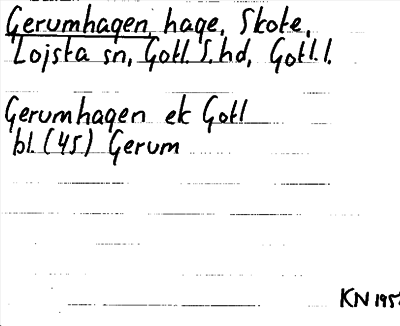 Gerumhagen, hage, Skote,
Lojsta sn, Gotl. S. hd, Gotl. l.
Gerumhagen ek Gotl
bl. (45) Gerum
KN